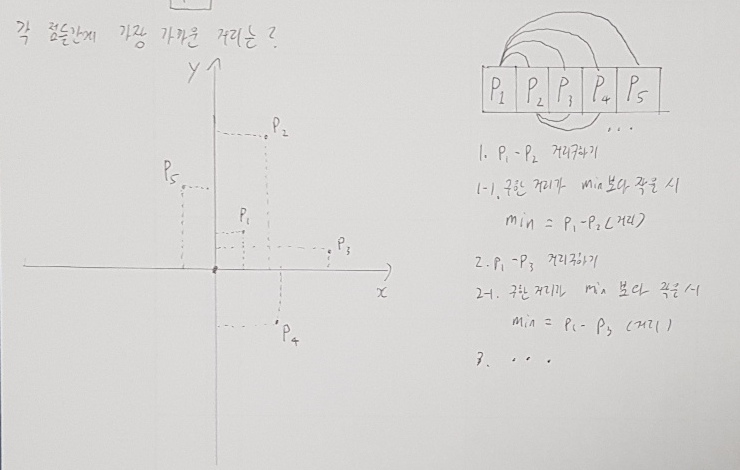 각 점들간에 가장 가까운 거리는?
y
P2
P5
P1
P3
x
P4
P1 P2 P3 P4 P5
...
1. P1-P2 거리구하기
1-1. 구한 거리가 min보다 작을 시
min = P1-P2(거리)
2. P1-P3 거리구하기
2-1. 구한 거리가 min 보다 작을 시
min = P1- P3 (거리)
3. ...